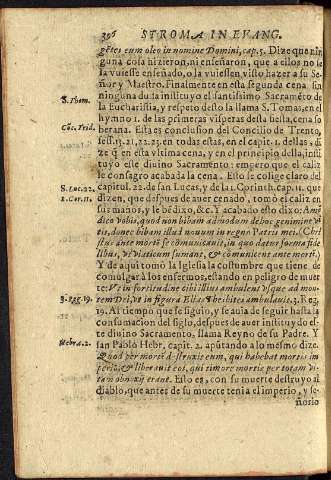 396 STROMA IN EVANG.
gẽtes eum oleo in nomine Domini, cap. 5. Dize que nin
guna cosa hizieron, ni enseñaron, que a ellos no se
la vuiesse enseñado, o la vuiessen visto hazer a su Se-
ñor y Maestro. Finalmente en esta segunda cena sin
ninguna duda instituyo el santissimo Sacramẽto de
S. Thom.
la Eucharistia, y respeto desto la llama S. Tomas, en el
hymno 1. de las primeras visperas desta fiesta, cena so
Cõc. Trid.
berana. Esta es conclusion del Concilio de Trento,
sess. 13. 21. 22. 23. en todas estas, en el capit. 1. dellas, di
ze q̃ en esta vltima cena, y en el principio della, insti
tuyo este diuino Sacramento: empero que el caliz
le consagro acabada la cena. Esto se colige claro del
S. Luc. 22.
capitul. 22. de san Lucas, y de la 1. Corinth. cap. 11. que
1. Cor. 11.
dizen, que despues de auer cenado, tomò el caliz en
sus manos, y le bẽdixo, &c. Y acabado esto dixo: Amẽ
dico vobis, quod non bibam admodum de hoc genimine vi
tis, donec bibam illud nouum in regno Patris mei. (Chri
stus ante mortẽ se comunicauit, in quo datur forma fide
libus, vt viaticum sumant, & comunicent ante mortẽ.)
Y de aqui tomò la Iglesia la costumbre que tiene de
comulgar a los enfermos, estando en peligro de muer
te: Vt in fortitudine cibi illius ambulent vsque ad mon-
3. Reg. 19.
tem Dei, vt in figura Elias Thesbites ambulauit. 3. Reg.
19. Al tiempo que se siguio, y se auia de seguir hasta la
consumacion del siglo, despues de auer instituydo es-
te diuino Sacramento, llama Reyno de su Padre. Y
Hebra. 2.
san Pablo Hebr. capit. 2. apũtando a lo mesmo dize.
Quod per mortẽ destruxit eum, qui habebat mortis im
perium, & liberauit eos, qui timore mortis per totam vi-
tam obnoxij erant. Esto es, con su muerte destruyo al
diablo, que antes de su muerte tenia el imperio, y se-
ñorio